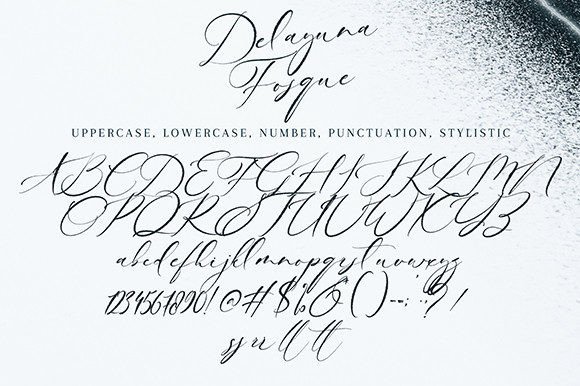 Delayuna
Fosque
UPPERCASE, LOWERCASE, NUMBER, PUNCTUATION, STYLISTIC
ABCDEFGHIJKLMN
OPQRSTUVWXYZ
abcdefghijklmnopqrstuvwxyz
1234567890!@#$%&()--:;"'?,/